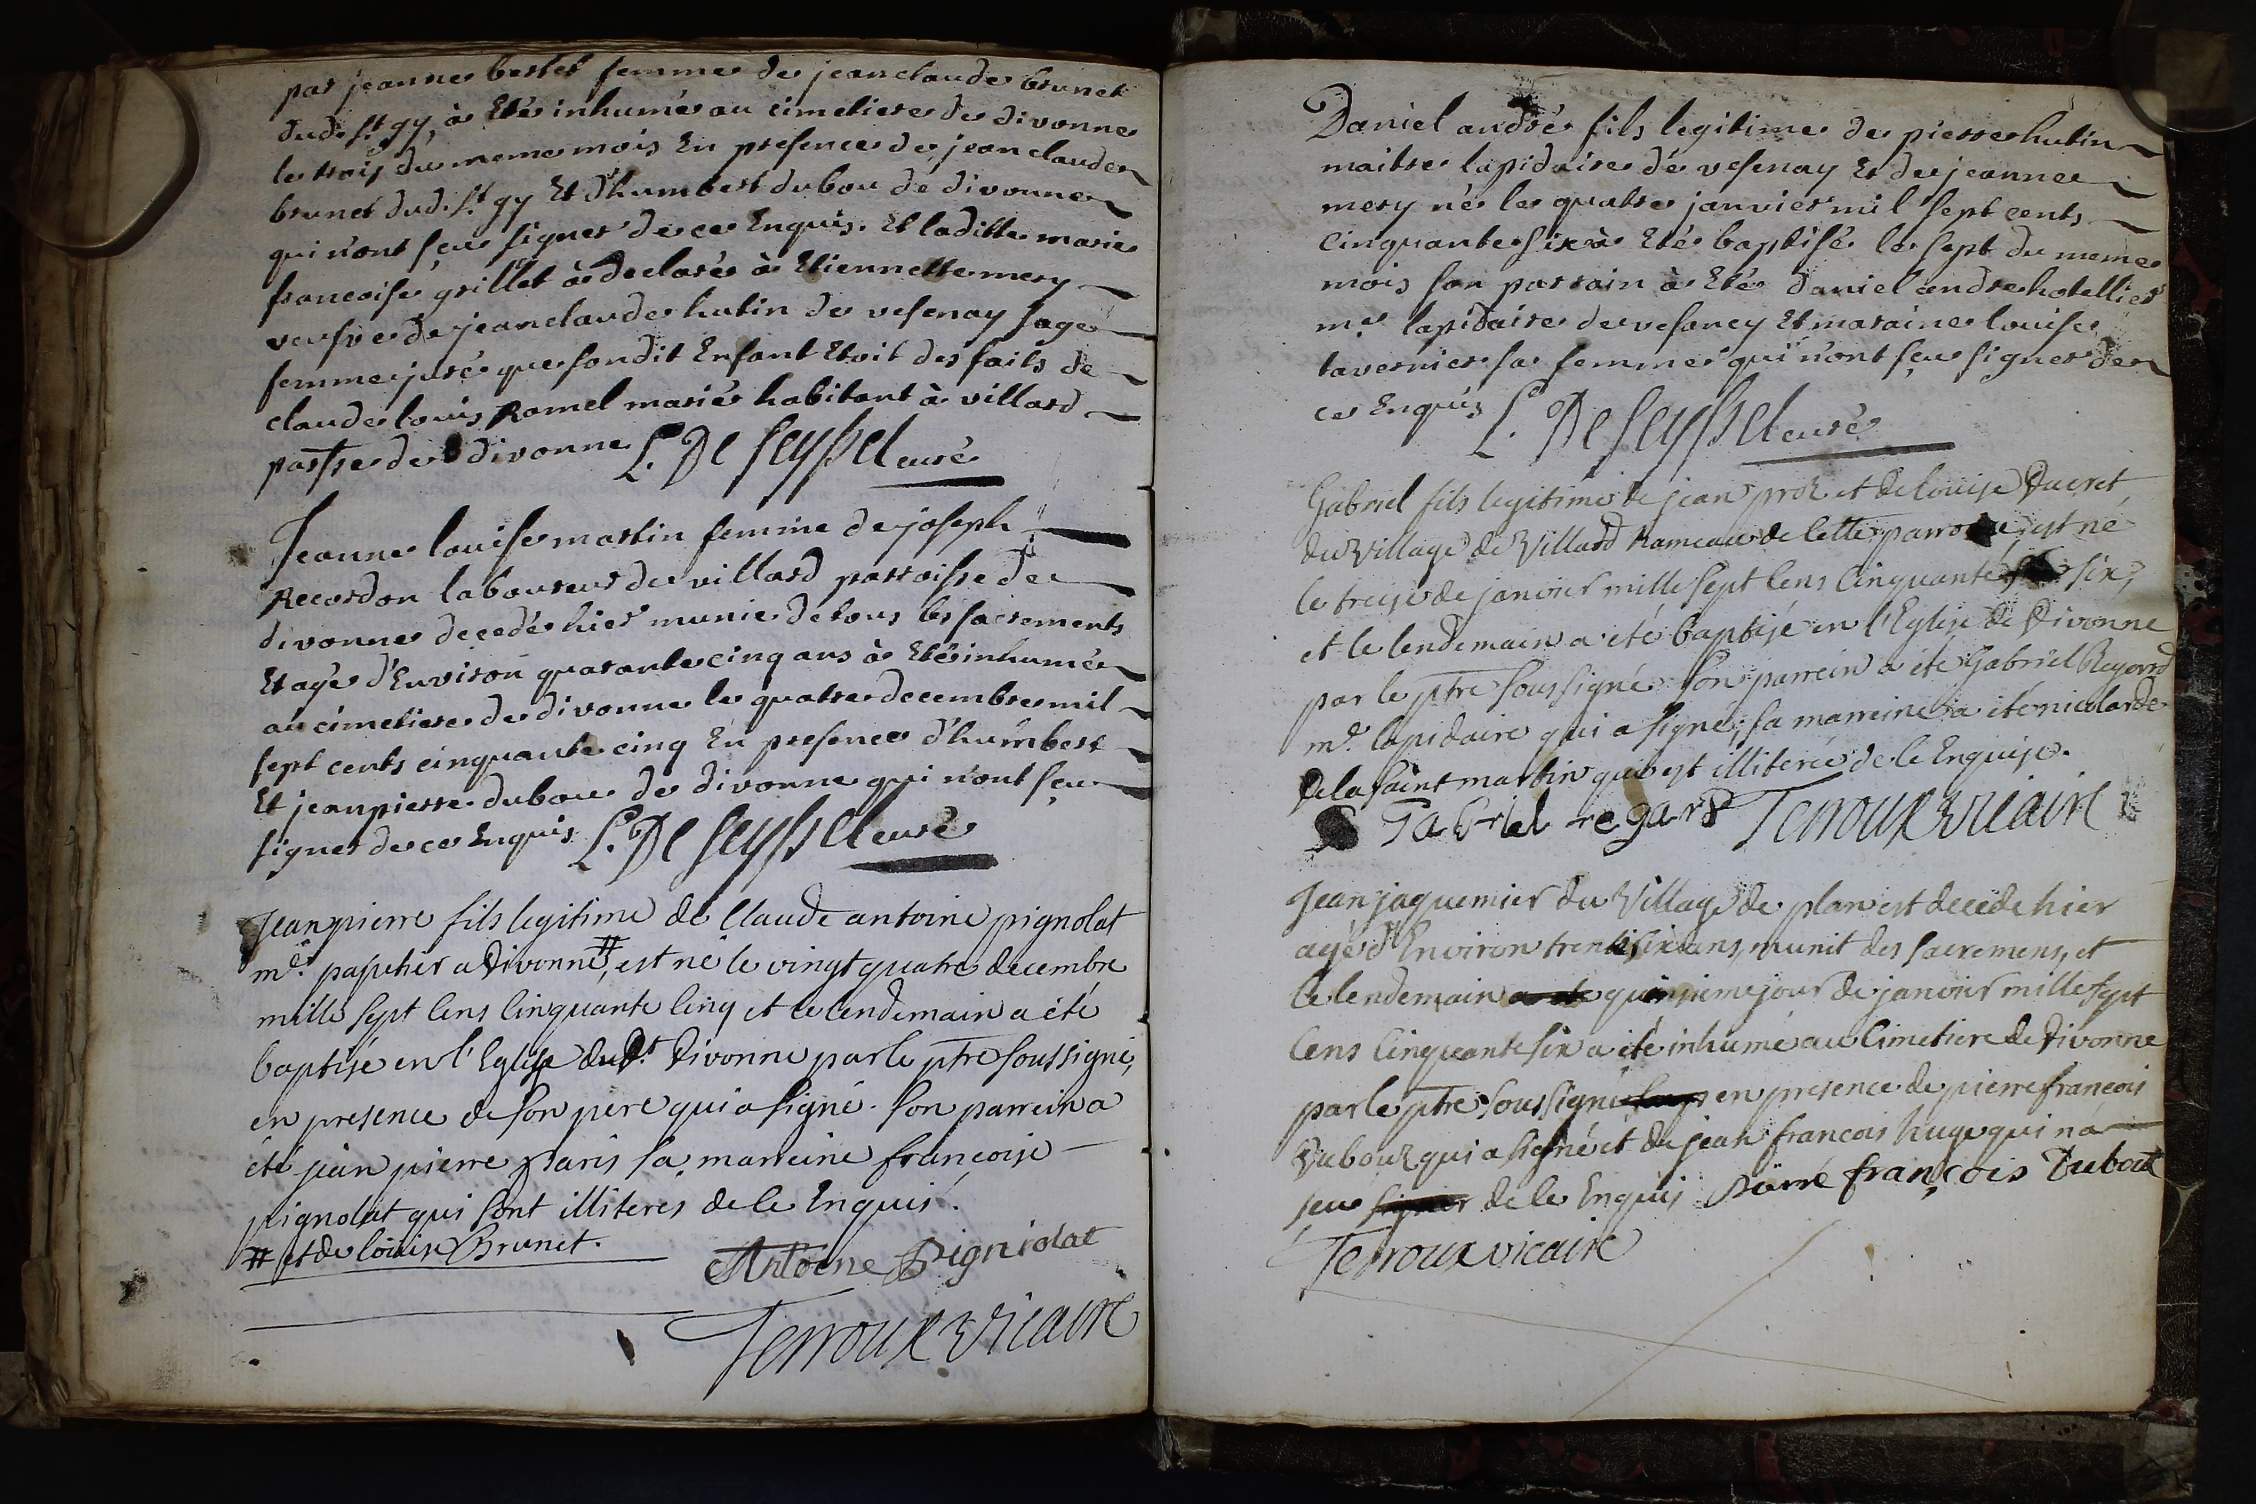 par jeanne bertet femme de jean claude brunet
dud. st gy, à Eté inhumé au cimetiere de divonne
le trois du meme mois En presence de jean claude
brunet dud. st gy Et d'humbert dubou de divonne
qui n'ont sçeu signer de ce Enquis. Et laditte marie
francoise grillet à declaré à Etiennette mery
veufve de jean claude hutin de vesenay sage
femme jurée que sondit Enfant Etoit des faits de
claude louis Ramel marié habitant à villard
parsse de divonne L. De Seyssel curé
Jeanne louise martin femme de joseph
Recordon laboureur de villard parroisse de
divonne decedée hier munie de tous les sacrements
Et agée d'Environ quarante cinq ans à Eté inhumée
au cimetiere de divonne le quatre decembre mil
sept cents cinquante cinq En presence d'humbert
Et jean pierre dubou de divonne qui n'ont sçeu
signer de ce Enquis L. De Seyssel curé
Jean pierre fils legitime de Claude antoine pignolat
me. papetier a Divonne #, est né le vingt quatre decembre
mille sept Cens Cinquante Cinq et le lendemain a été
baptisé en l'Eglise dudt. Divonne par le ptre soussigné,
en presence de son pere qui a signé. Son parrein a
été jean pierre paris sa marreine francoise
pignolat qui sont illiteres de ce Enquis.
# et de louise Brunet.
Antoene Pigniolat
Terroux vicaire
Daniel andré fils legitime de pierre hutin
maitre lapidaire dé vesenay Et de jeanne
mery né le quatre janvier mil sept cents
cinquante six à Eté baptisé le sept du meme
mois son parrain à Eté daniel andre hotellier
me. lapidaire de vesancy Et maraine louise
tavernier sa femme qui n'ont sçeu signer de
ce Enquis L. De Seyssel curé
Gabriel fils legitime de jean proz et de louise Ducret
du Village de Villard hameau de Cette parroisse, est né
le treize de janvier mille sept Cens Cinquante six,
et le lendemain a été baptisé en l'Eglise de Divonne
par le ptre soussigné. Son parrein a été Gabriel Regard
me. lapidaire qui a signé; sa marreine a été nicolarde
De la saint martin qui est illiterée de ce Enquise.
Gabriel regard Terroux vicaire
Jean jaquemier du Village de plan est decedé hier
agé d'Environ trente six ans, munit des sacremens, et
le lendemain a été quinzieme jour de janvier mille sept
Cens Cinquante six a été inhumé au Cimetiere de Divonne
par le ptre soussigné en presence de pierre francois
Dubouz qui a signé et de jean francois huge qui n'a
seu signer de ce Enquis pierre françois Dubout
Terroux vicaire